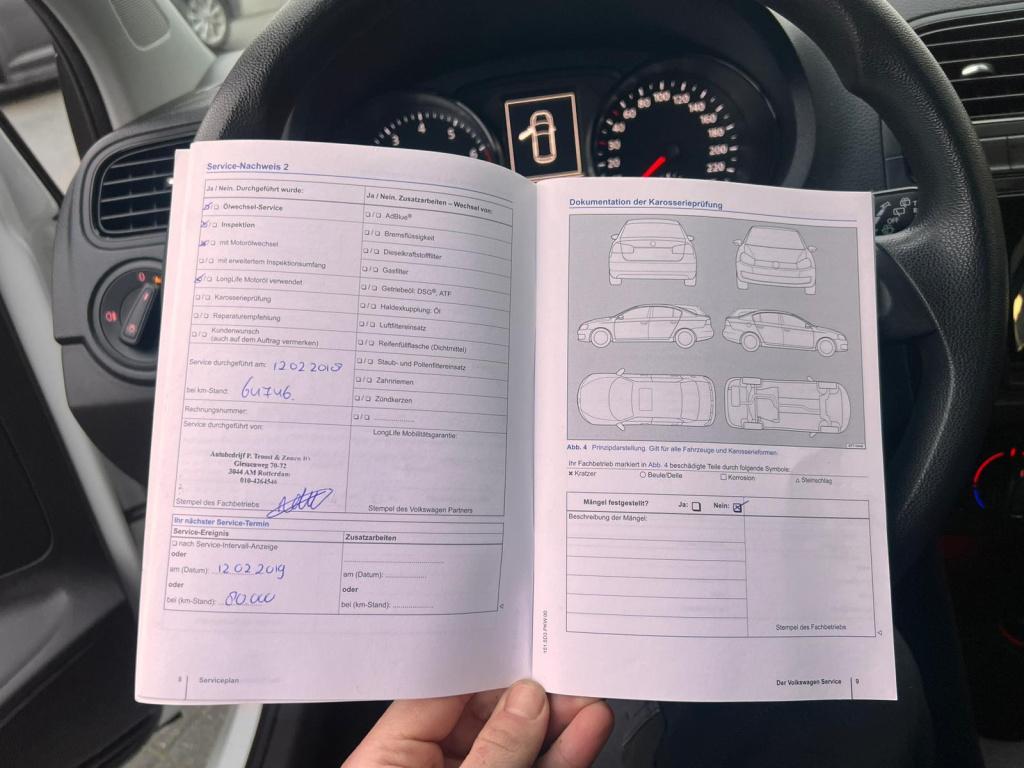 3 4 5 6
20 30 40 60 80 100 120 140 160 180 200 220
OFF
Service-Nachweis 2
Ja / Nein. Durchgeführt wurde:
Ölwechsel-Service
Inspektion
mit Motorölwechsel
mit erweitertem Inspektionsumfang
LongLife Motoröl verwendet
Karosserieprüfung
Reparaturempfehlung
Kundenwunsch
(auch auf dem Auftrag vermerken)
Service durchgeführt am: 12 02 2018
bei km-Stand: 64746
Rechnungsnummer:
Service durchgeführt von:
Autobedrijf P. Troost & Zonen
Giessenweg 70-72
3044 AM Rotterdam
010-4264546
Stempel des Fachbetriebs
Ja / Nein. Zusatzarbeiten – Wechsel von:
AdBlue®
Bremsflüssigkeit
Dieselkraftstofffilter
Gasfilter
Getriebeöl: DSG®, ATF
Haldexkupplung: Öl
Luftfiltereinsatz
Reifenfüllflasche (Dichtmittel)
Staub- und Pollenfiltereinsatz
Zahnriemen
Zündkerzen
LongLife Mobilitätsgarantie:
Stempel des Volkswagen Partners
Ihr nächster Service-Termin
Service-Ereignis
nach Service-Intervall-Anzeige
oder
am (Datum): 12 02 2019
oder
bei (km-Stand): 80.000
Zusatzarbeiten
am (Datum):
oder
bei (km-Stand):
8 Serviceplan
Dokumentation der Karosserieprüfung
Abb. 4 Prinzipdarstellung. Gilt für alle Fahrzeuge und Karosserieformen.
Ihr Fachbetrieb markiert in Abb. 4 beschädigte Teile durch folgende Symbole:
Kratzer Beule/Delle Korrosion Steinschlag
Mängel festgestellt? Ja: Nein:
Beschreibung der Mängel:
Stempel des Fachbetriebs
Der Volkswagen Service 9